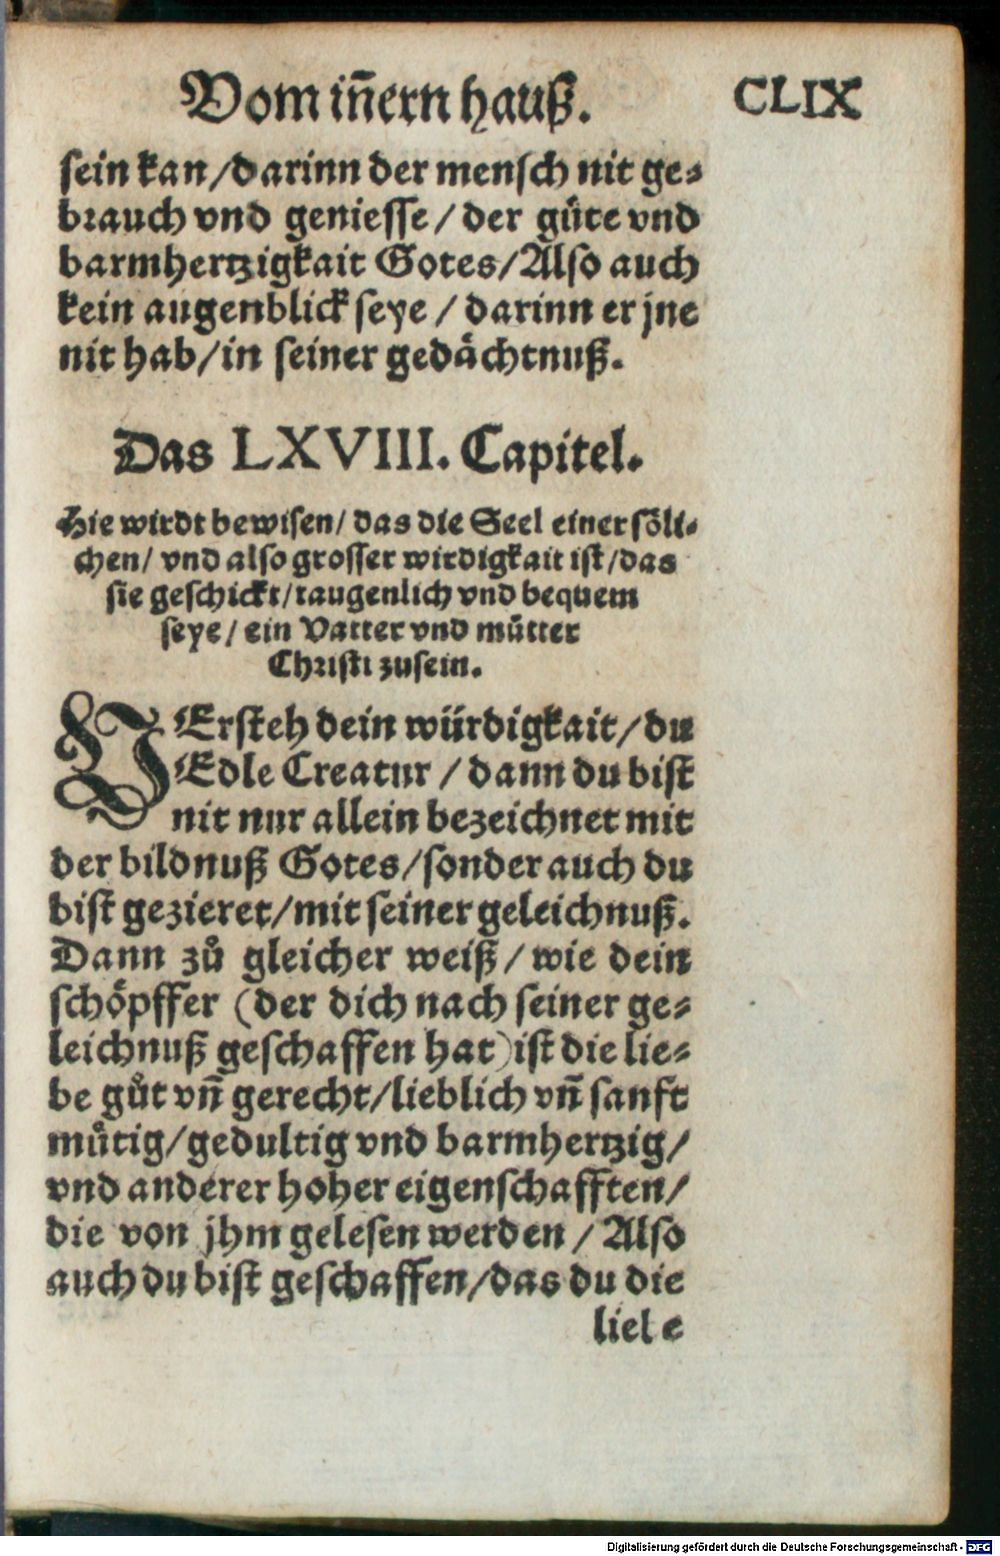 Vom iñern hauß.
CLIX
sein kan/darinn der mensch nit ge⸗
brauch vnd geniesse/der gůte vnd
barmhertzigkait Gotes/Also auch
kein augenblick seye/darinn er jne
nit hab/in seiner gedächtnuß.
Das LXVIII. Capitel.
Hie wirdt bewisen/das die Seel einer söli⸗
chen/vnd also grosser wirdigkait ist/das
sie geschickt/taugenlich vnd bequem
seye/ein Vatter vnd můtter
Christi zusein.
VErsteh dein würdigkait/du
Edle Creatur/dann du bist
nit nur allein bezeichnet mit
der bildnuß Gotes/sonder auch du
bist gezieret/mit seiner geleichnuß.
Dann zů gleicher weiß/wie dein
schöpffer (der dich nach seiner ge⸗
leichnuß geschaffen hat) ist die lie⸗
be gůt vñ gerecht/lieblich vñ sanft
můtig/gedultig vnd barmhertzig/
vnd anderer hoher eigenschafften/
die von jhm gelesen werden/Also
auch du bist geschaffen/das du die
liebe
Digitalisierung gefördert durch die Deutsche Forschungsgemeinschaft - DFG